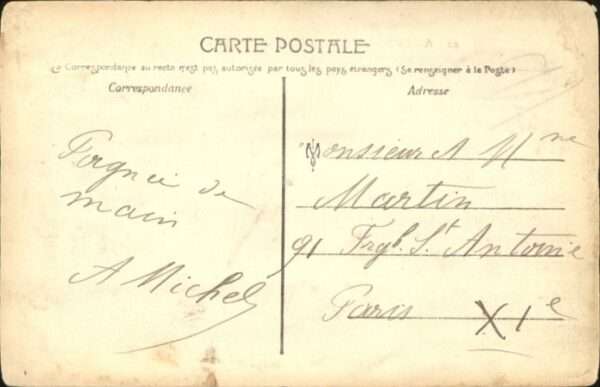 CARTE POSTALE
La Correspondance au recto n'est pas autorisée par tous les pays étrangers (Se renseigner à la Poste)
Correspondance
Adresse
Poignée de
main
A Michel
Monsieur A Mme
Martin
91 Frgb. St Antoine
Paris XIe